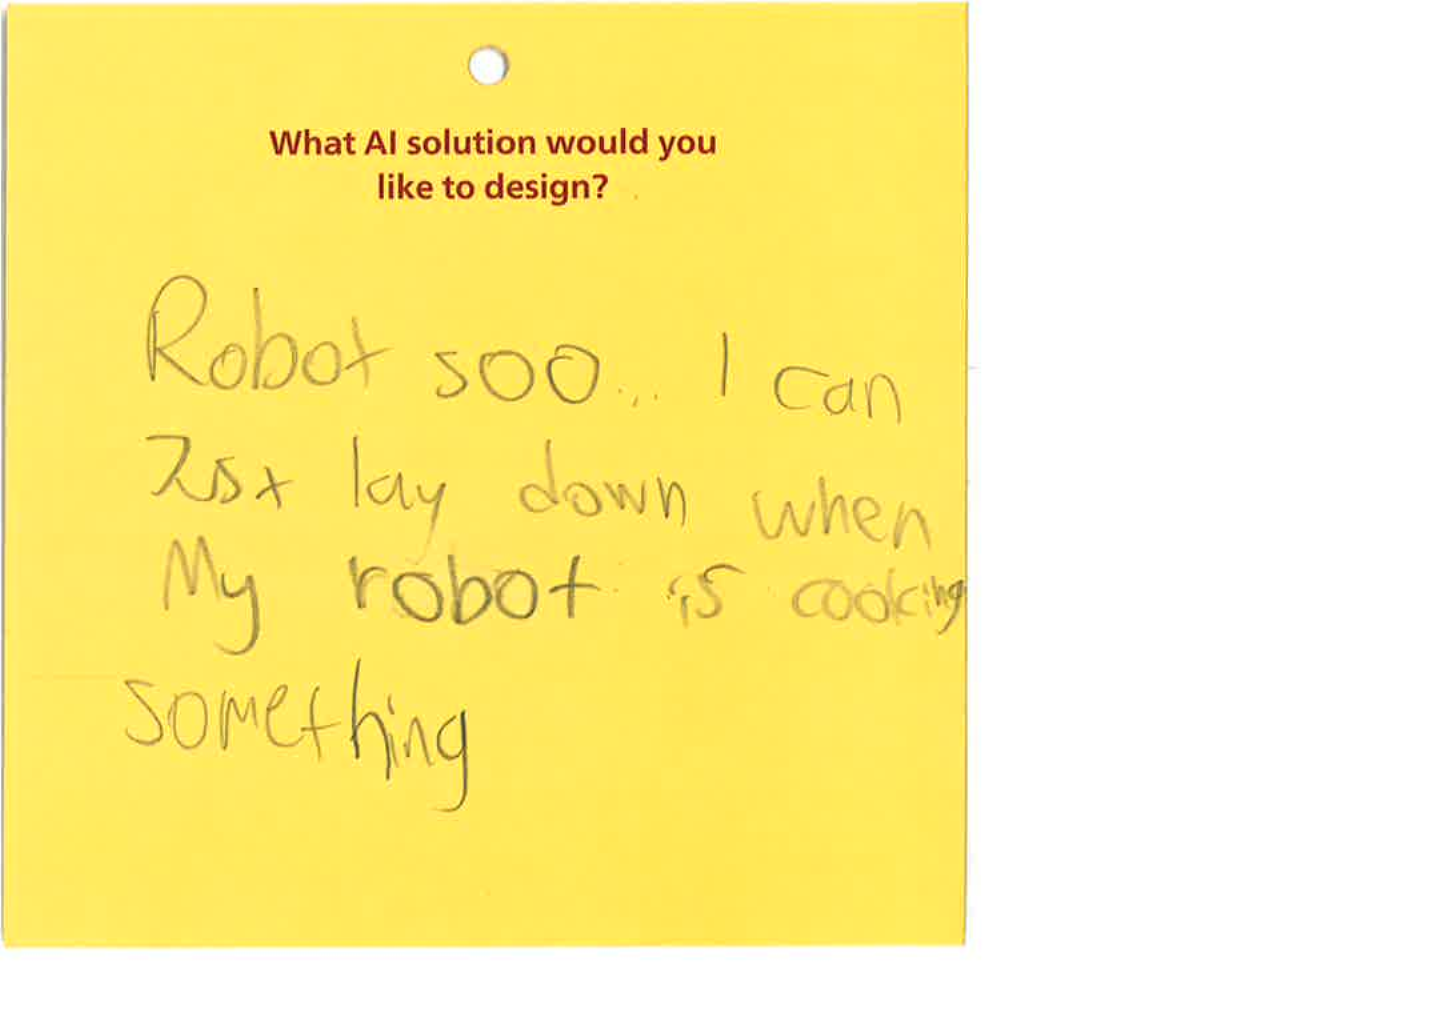 What AI solution would you
like to design?
Robot soo... I can
lay down when
My robot is cooking
something